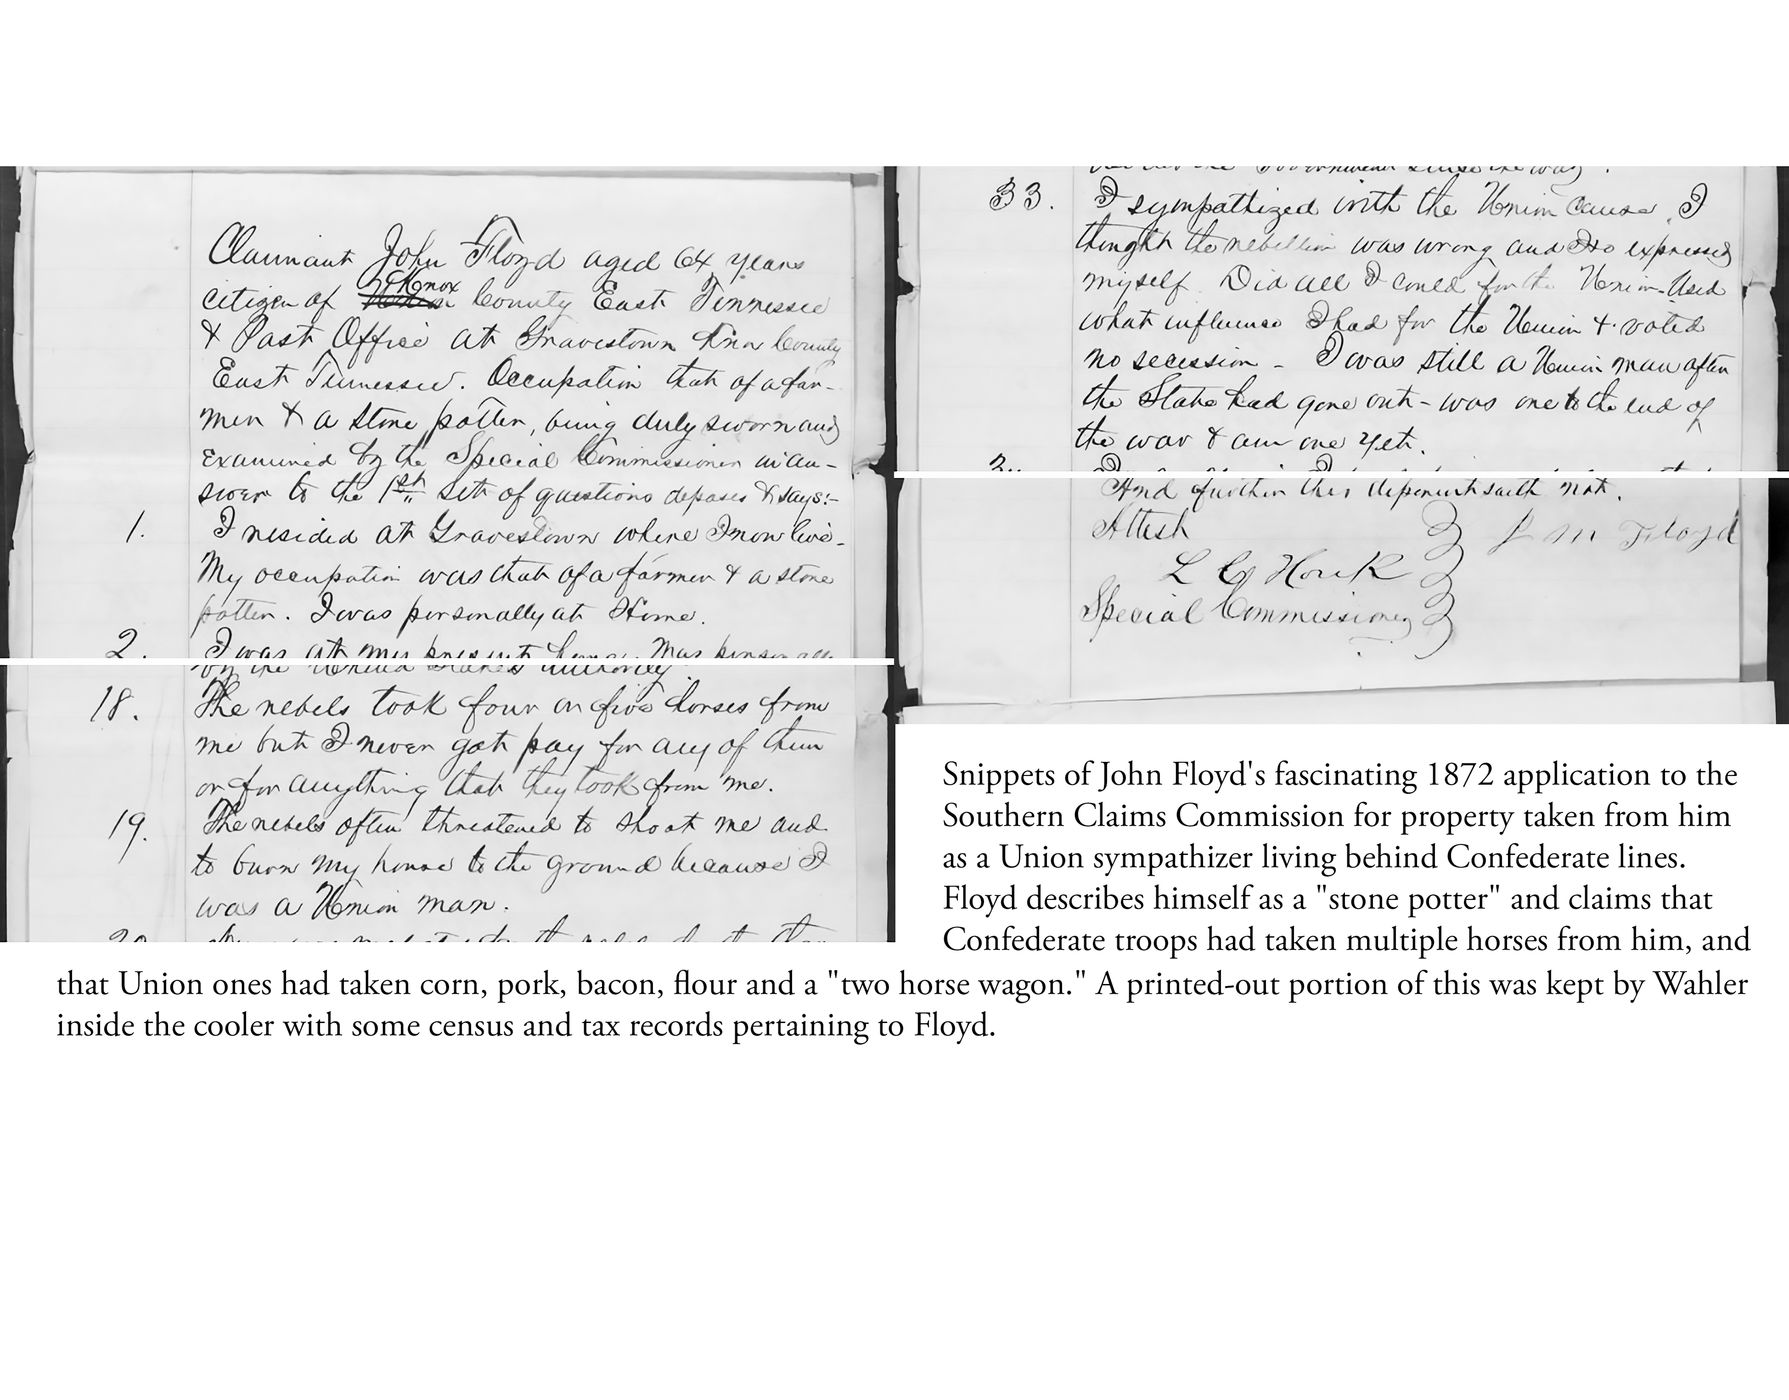 Claimant John Floyd aged 64 years
citizen of Knox County East Tennessee
& Post Office at Gravestown Knox County
East Tennessee. Occupation that of a far-
mer & a stone potter, being duly sworn and
examined by the Special Commissioner in an-
swer to the 1st set of questions deposes & says:-
1. I resided at Gravestown where I now live.
My occupation was that of a farmer & a stone
potter. I was personally at Home.
2. I was at my present home. Was
by the United States authority
18. The rebels took four or five horses from
me but I never got pay for any of them
or for anything that they took from me.
19. The rebels often threatened to shoot me and
to burn my house to the ground because I
was a Union man.
20.
the Government since the war.
33. I sympathized with the Union cause. I
thought the rebellion was wrong and so expressed
myself. Did all I could for the Union. Used
what influence I had for the Union & voted
no secession - I was still a Union man after
the State had gone out - was one to the end of
the war & am one yet.
And further this deponent saith not.
Attest
L C Houk
Special Commissioner
Floyd
Snippets of John Floyd's fascinating 1872 application to the
Southern Claims Commission for property taken from him
as a Union sympathizer living behind Confederate lines.
Floyd describes himself as a "stone potter" and claims that
Confederate troops had taken multiple horses from him, and
that Union ones had taken corn, pork, bacon, flour and a "two horse wagon." A printed-out portion of this was kept by Wahler
inside the cooler with some census and tax records pertaining to Floyd.